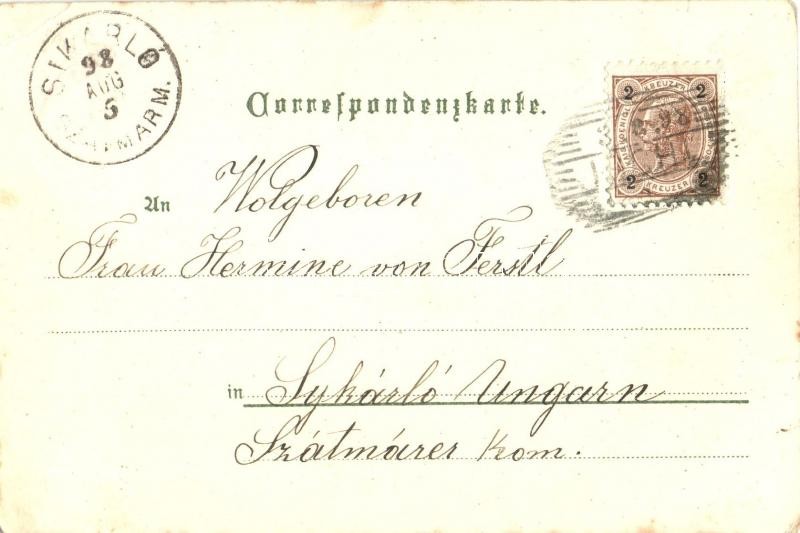 SIKÁRLÓ
98
AUG
5
Correspondenzkarte.
2 KREUZER 2
2 KREUZER 2
An Wolgeboren
Frau Hermine von Ferstl
in Sykárló Ungarn
Szátmárer Kom.